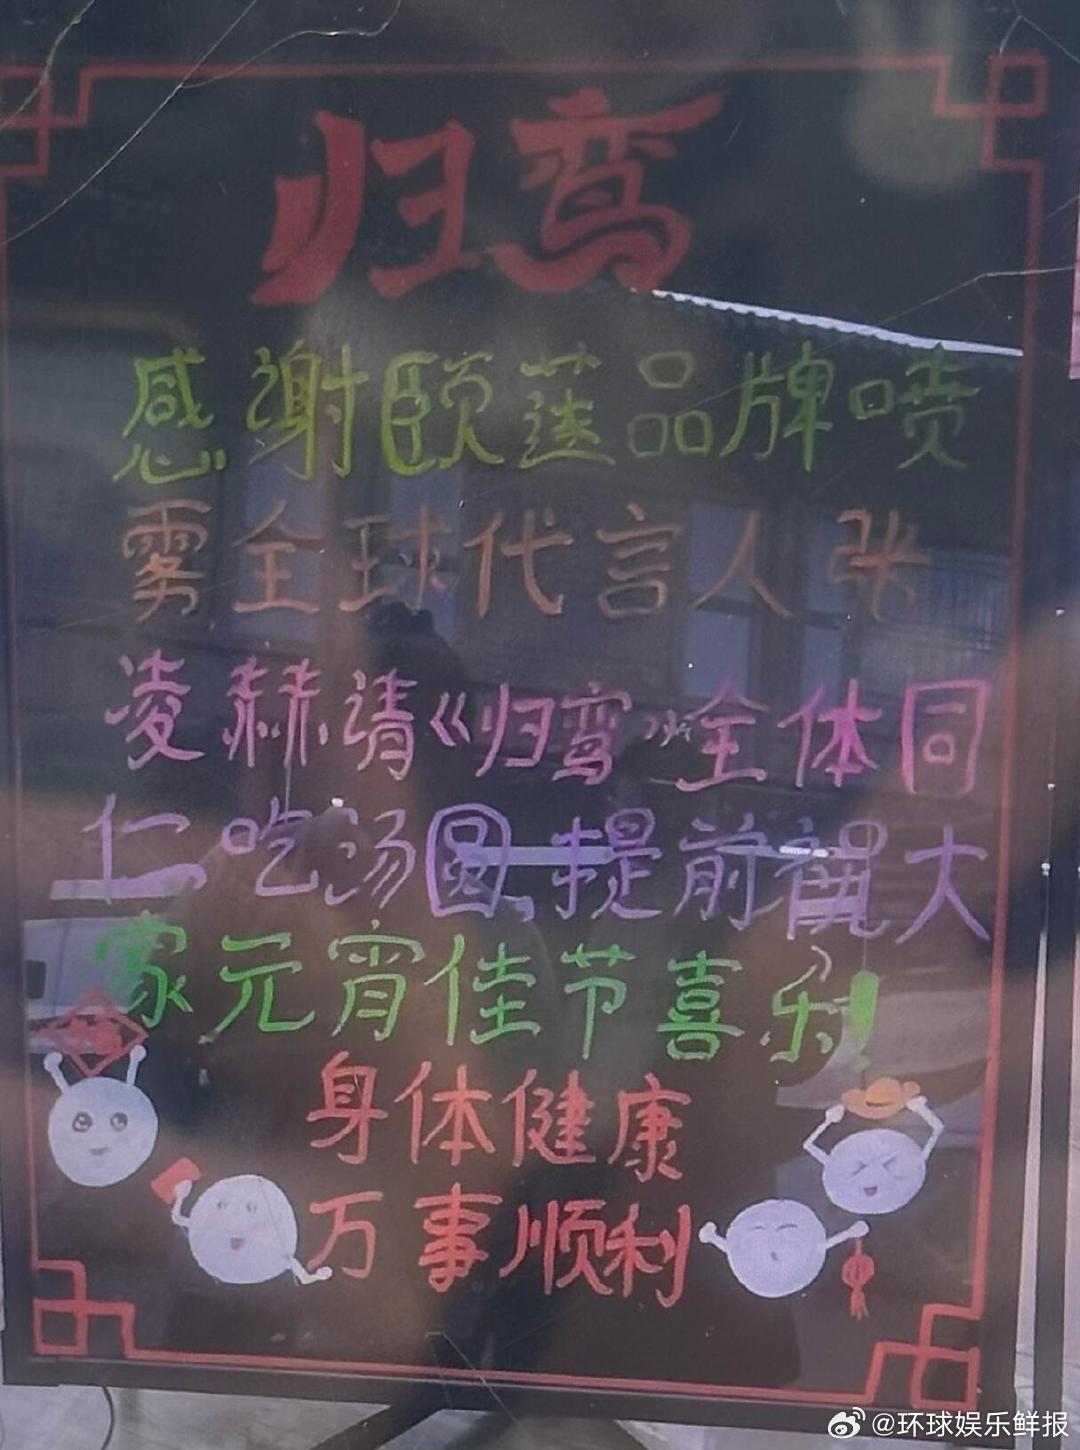 归鸾
感谢颐莲品牌喷
雾全球代言人张
凌赫请《归鸾》全体同
仁吃汤圆,提前祝大
家元宵佳节喜乐!
身体健康
万事顺利
@环球娱乐鲜报